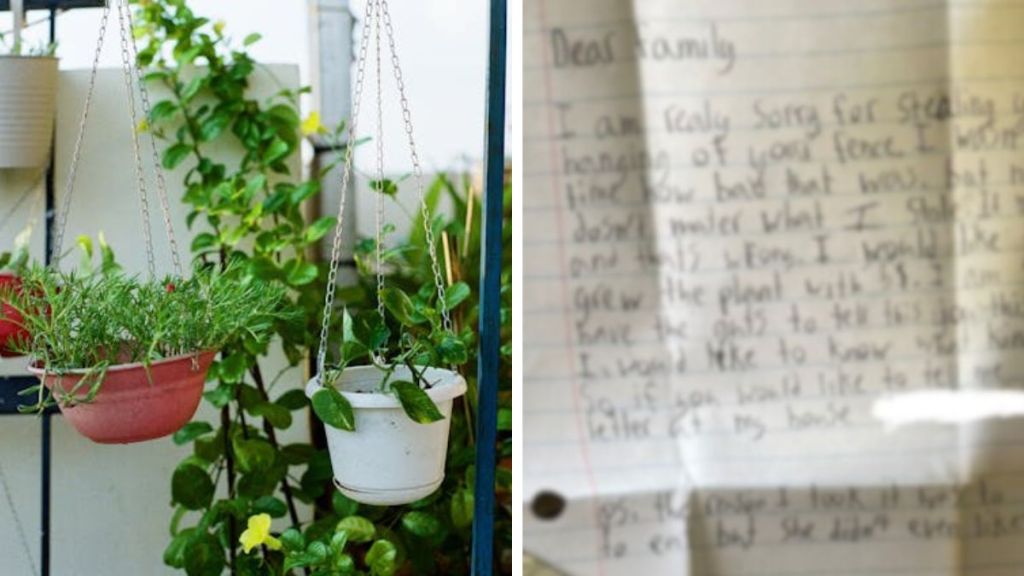 Dear Family
I am realy Sorry for Stealing
hanging of your fence. I
time how bad that was. but
dosn't mater what I Stole It
and thats wrong. I would like
grew the plant with 5$. I am
have the guts to tell this you
I would like to know your
so if you would like to tell me
letter at my house
ps. the reason I took it was to
to em but She didn't even like